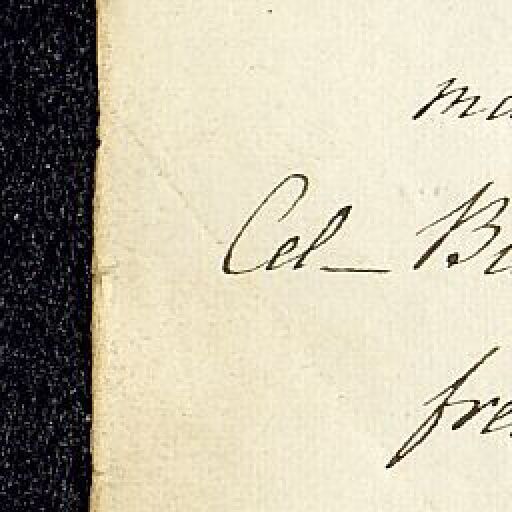 ma
Cel_ Bu
fre